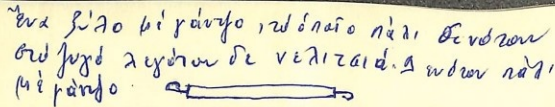 Ένα ξύλο μέ γάντζο, τό όποῖο πάλι δενόταν
στό ζυγό λεγόταν δε νελιτσιά. Δενόταν πάλι
μέ γάντζο.